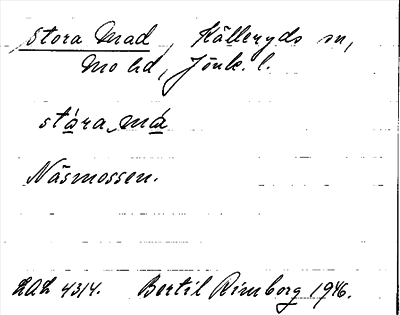 Stora Mad, Källeryds sn,
Mo hd, Jönk. l.
stára má
Näsmossen.
LAL 4314. Bertil Rimborg 1946.